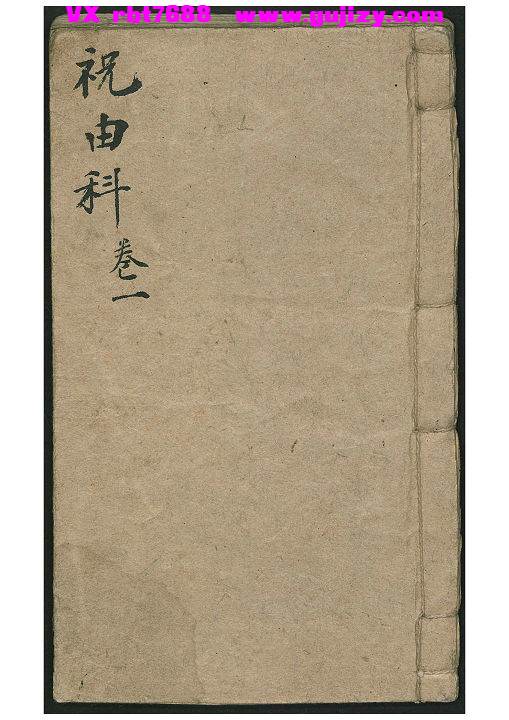 VX rbt7688 www.gujizy.com
祝由科
卷一